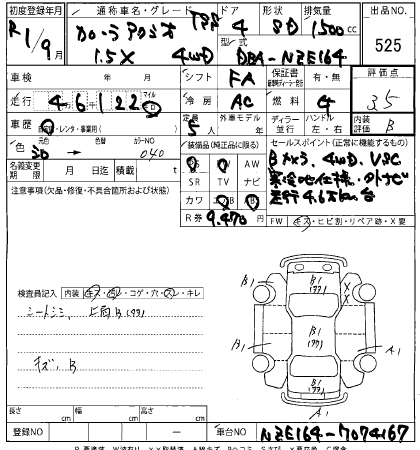 初度登録年月 通称車名・グレード ドア 形状 排気量 出品NO.
R1/9月 カローラアクシオ 4 SD 1500cc 525
1.5X 4WD 型式 DBA-NZE164
車検 年 月 シフト FA 保証書 有・無 評価点
走行 46,122 マイル 冷房 AC 燃料 3.5
車歴 自家用・レンタ・事業用( ) 定員 5人 外車モデル 年 ディーラー 並行 ハンドル 左・右 内装 B
元色 → 色替 カラーNO 040 装備品(純正品に限る) セールスポイント(正常に機能するもの)
PS PW AW Bカメラ, 4WD, VSC
名義変更期限 月 日迄 積載 t SR TV ナビ 寒冷地仕様・外ナビ
注意事項(欠品・修復・不具合箇所および状態) カワ 走行4.6万km台
R券 9,470 FW キズ・ヒビ割・リペア跡・X・交
検査員記入 内装 キズ・汚レ・コゲ・穴・スレ・キレ
シートシミ, 上
キズ, B
B1
B1
B1
B1
B1
X
X
A1
A1
長さ cm 幅 cm 高さ cm
登録NO - 車台NO NZE164-7074167